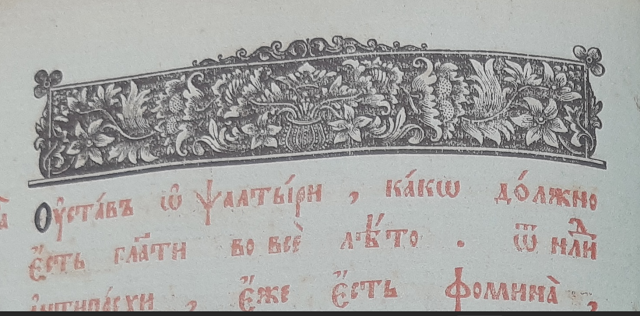 Оу҆ста́въ ѡ҆ ѱалты́ри , ка́кѡ до́лжно
є҆́сть гл҃ати во всѐ лѣ́то . ѿ нлⷣи
антипасхи , є҆́же є҆́сть ѳомина̀ ,